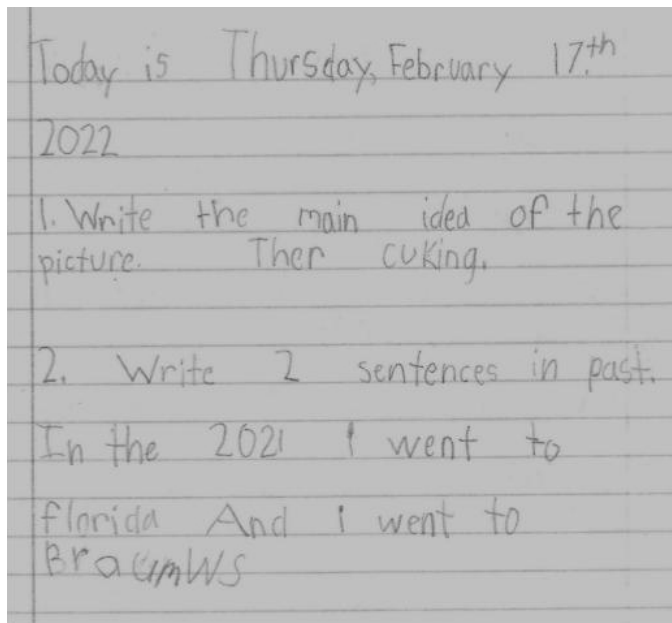 Today is Thursday, February 17.th
2022
1. Write the main idea of the
picture. Ther cuking.
2. Write 2 sentences in past.
In the 2021 I went to
florida And i went to